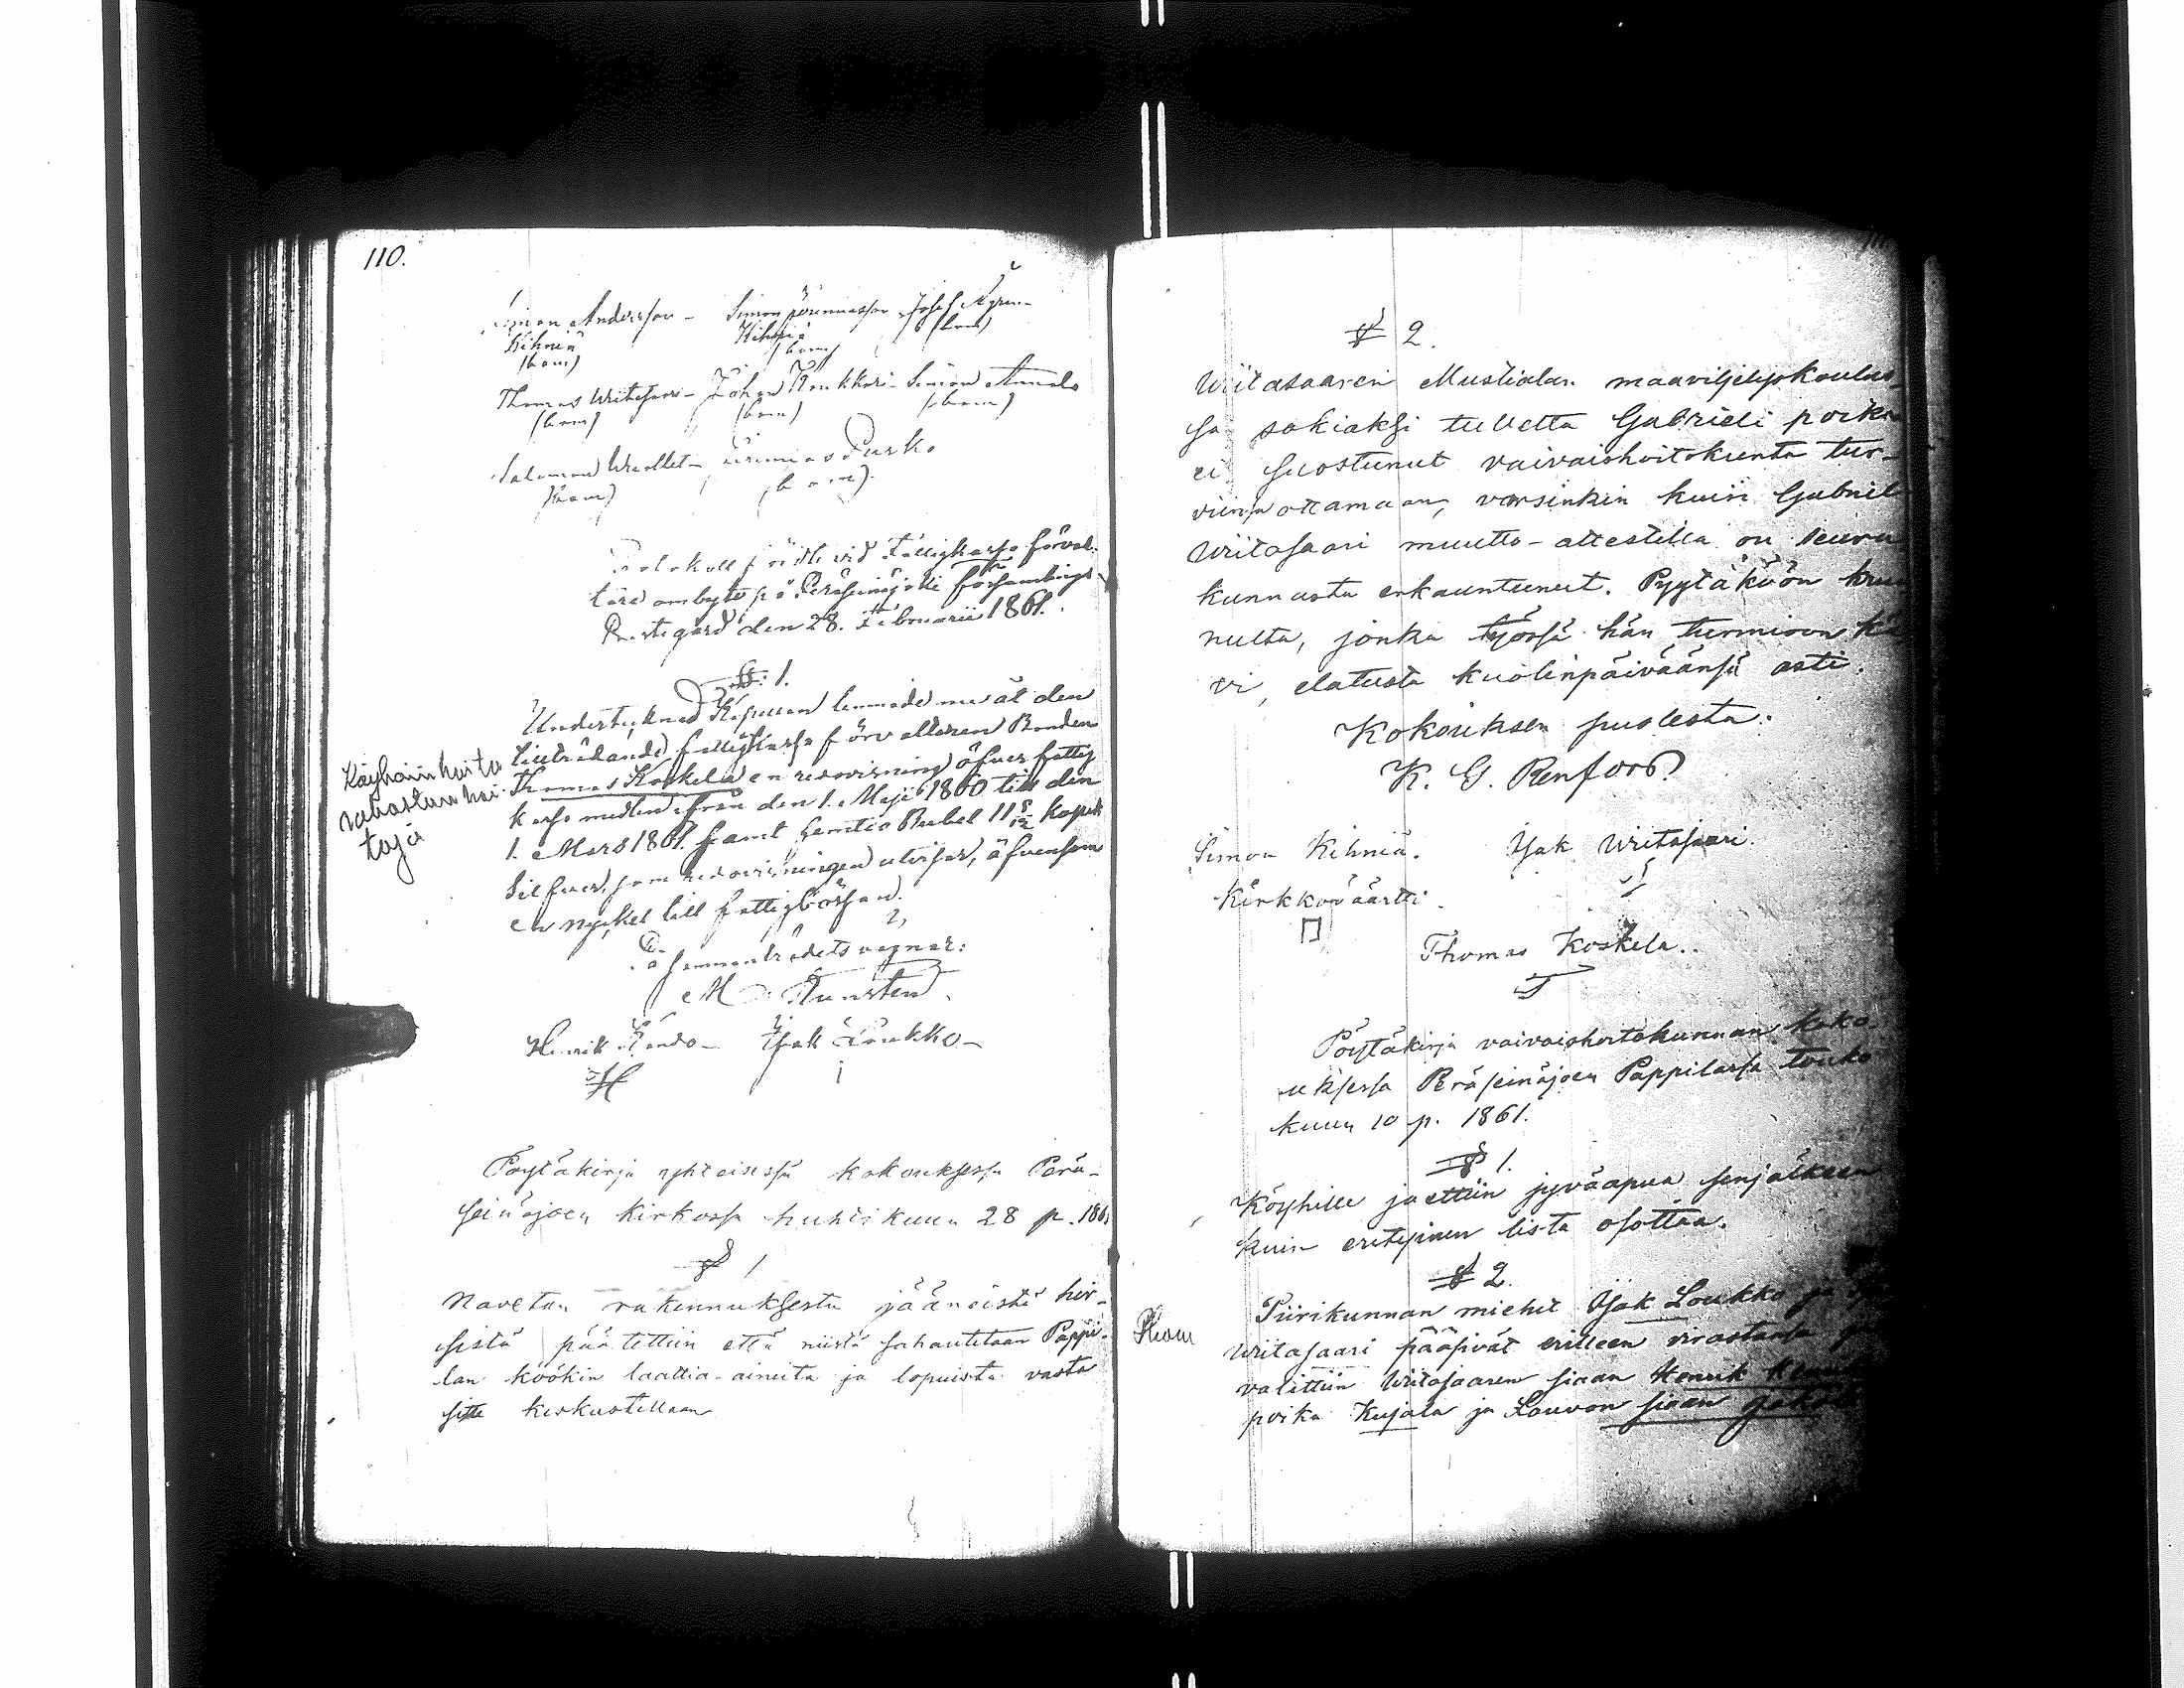 110.
Simon Andersson – Simon Jeremiasson – Josef Kgren –
Kihniä Kihniä (bom)
(bom) (bom)
Thomas Writasaari – Johan Koukkari – Simon Annala
(bom) (bom) (bom)
Salomon – Jeremias Purko
(bom) (bom).
Protokoll fördt vid Fattigkasse förval-
tare ombyte på Peräseinäjoki församlings
Prestgård den 28. Februarii 1861.
§: 1.
Undertecknad Kapellan lemnade nu åt den
tillträdande fattigkasse förvaltaren Bonden
Thomas Koskela en redovisning öfver fattig
kasse medlen från den 1. Maji 1860 till den
1. Mars 1861. samt Femtio Rubel 11 5/12 Kopek
Silfver, som redovisningen utvisar, äfvensom
en nyckel till fattigbössan.
Köyhäinhoito
rahastun hoi
taja
På sammanträdets vagnar:
M Tunsten.
Henrik Rando – Isak Loukko –
Pöytäkirja yhteisessä kokouksessa Perä-
seinäjoen kirkossa huhtikuun 28 p. 1861
§ 1
Navetan rakennuksesta jääneistä hir-
sistä päätettiin että niistä sahautetaan Pappi-
lan köökin laattia-aineita ja lopuista vasta
sitte keskustellaan
§ 2.
Wiitasaaren Mustialan maaviljelyskoulus-
sa sokiaksi tulletta Gabrieli poikaa
ei suostunut vaivaishoitokunta tur-
viinsa ottamaan, varsinkin kuin Gabriel
Wiitasaari muutto-attestilla on seura
kunnasta erkauntunut. Pyytäköön kruu
nulta, jonka työssä hän turmioon kä
vi, elatusta kuolinpäiväänsä asti.
Kokouksen puolesta:
K. G. Renfors.
Simon Kihniä. Isak Writasaari.
Kirkkoväärtti.
Thomas Koskela.
Pöytäkirja vaivaishoitokunnan koko-
uksessa Peräseinäjoen Pappilassa touko
kuun 10 p. 1861.
§ 1.
Köyhille jaettiin jyväapua senjälkeen
kuin erityinen lista osottaa.
§ 2.
Piirikunnan miehet Isak Loukko ja
Writasaari pääsivät erilleen virastansa
valittiin Wiitasaaren siaan Henrik
poika Kujala ja Louvon siaan